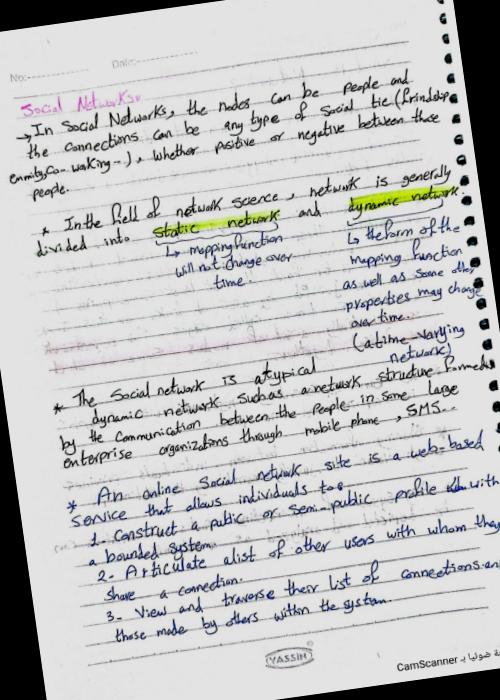 No:
Date:
Social Networks:
→ In Social Networks, the nodes can be people and
the connections can be any type of social tie (frindship
enmity, Co-waking --), whether positive or negative between these
people.
* In the field of network science, network is generally
divided into static network and dynamic network.
↳ mapping function
will not change over
time.
↳ the form of the
mapping function
as well as some other
properties may change
over time.
(a time varying
network)
* The Social network is atypical
dynamic network such as a network structure formed
by the communication between the People in some large
enterprise organizations through mobile phone, SMS...
* An online Social network site is a web-based
service that allows individuals to:
1- Construct a public or semi-public profile with
a bounded system.
2- Articulate a list of other users with whom they
share a connection.
3- View and traverse their list of connections an
those made by others within the system.
YASSIN
CamScanner بـ ضوئيا